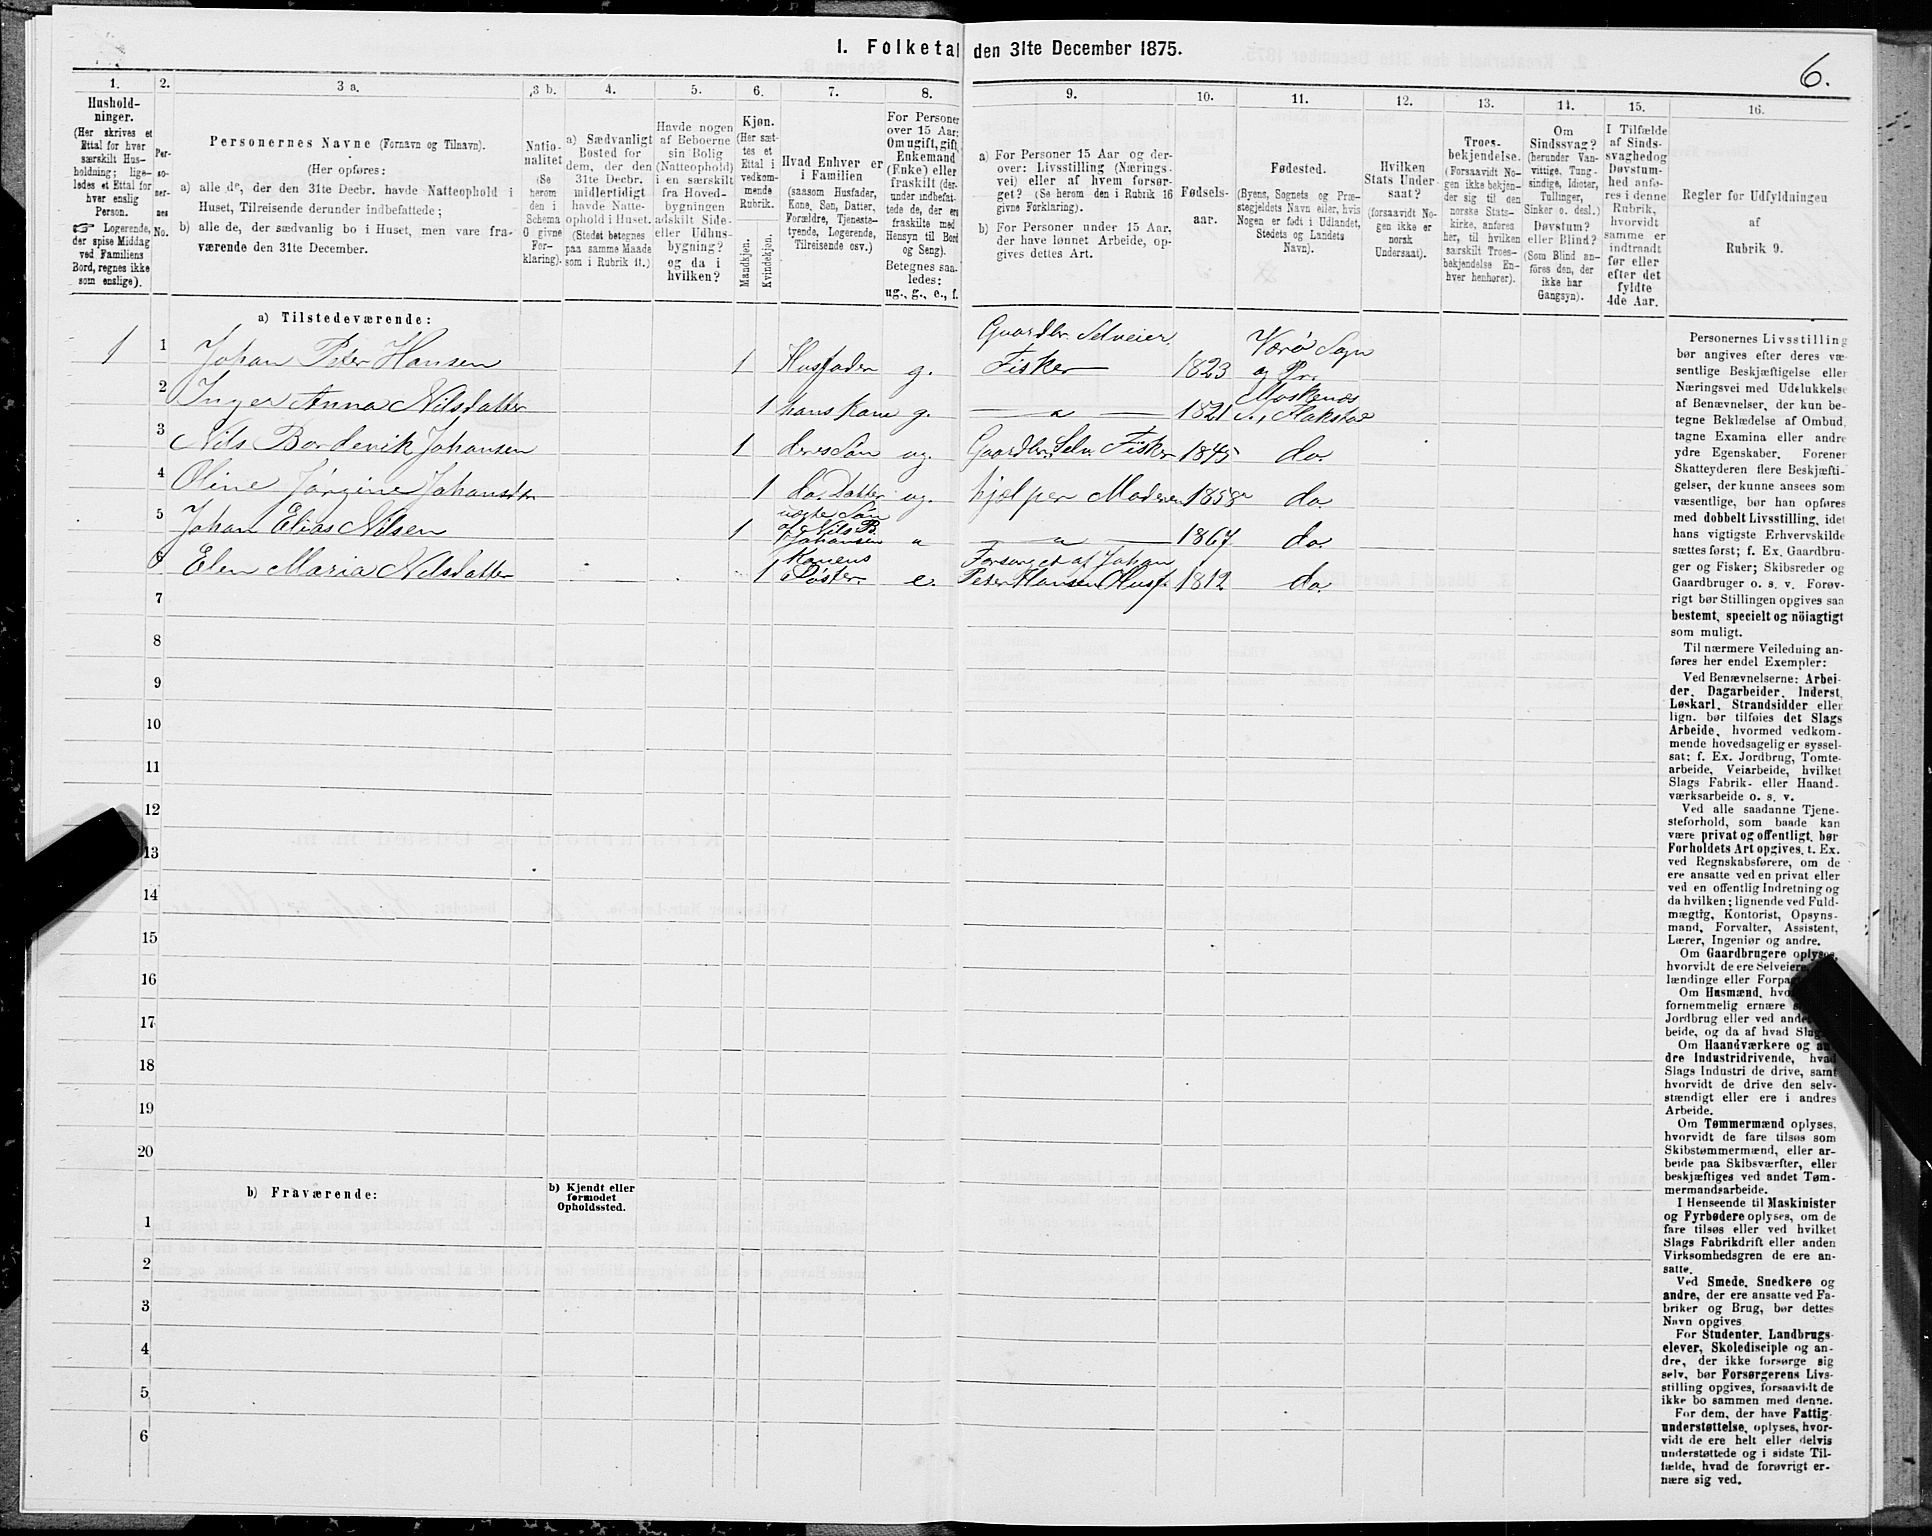 I. Folketal den 31te December 1875.
6.
1. 2. 3 a. 3 b. 4. 5. 6. 7. 8. 9. 10. 11. 12. 13. 14. 15. 16.
Hushold-
ninger.
(Her skrives et
Ettal for hver
særskilt Hus-
holdning; lige-
ledes et Ettal for
hver enslig
Person.
☞ Logerende,
der spise Middag
ved Familiens
Bord, regnes ikke
som enslige).
Per-
so-
ner-
nes
No.
Personernes Navne (Fornavn og Tilnavn).
(Her opføres:
a) alle de, der den 31te Decbr. havde Natteophold i
Huset, Tilreisende derunder indbefattede;
b) alle de, der sædvanlig bo i Huset, men vare fra-
værende den 31te December.
Natio-
nalitet
(Se
herom
den i
Schema
O givne
For-
klaring).
a) Sædvanligt
Bosted for
dem, der den
31te Decbr.
midlertidigt
havde Natte-
ophold i Huset.
(Stedet betegnes
paa samme Maade
som i Rubrik 11.)
Havde nogen
af Beboerne
sin Bolig
(Natteophold)
i en særskilt
fra Hoved-
bygningen
adskilt Side-
eller Udhus-
bygning?
og da i
hvilken?
Kjøn.
(Her sæt-
tes et
Ettal i
vedkom-
mende
Rubrik.
Mandkjøn.
Kvindekjøn.
Hvad Enhver er
i Familien
(saasom Husfader,
Kone, Søn, Datter,
Forældre, Tjeneste-
tyende, Logerende,
Tilreisende osv.)
For Personer
over 15 Aar:
Om ugift, gift,
Enkemand
(Enke) eller
fraskilt (der-
under indbefat-
tede de, der ere
fraskilte med
Hensyn til Bord
og Seng).
Betegnes saa-
ledes:
ug., g., e., f.
a) For Personer 15 Aar og der-
over: Livsstilling (Nærings-
vei) eller af hvem forsør-
get? (Se herom den i Rubrik 16
givne Forklaring).
b) For Personer under 15 Aar,
der have lønnet Arbeide, op-
gives dettes Art.
Fødsels-
aar.
Fødested.
(Byens, Sognets og Præ-
stegjeldets Navn eller, hvis
Nogen er født i Udlandet,
Stedets og Landets
Navn).
Hvilken
Stats Under-
saat?
(forsaavidt No-
gen ikke er
norsk
Undersaat).
Troes-
bekjendelse.
(Forsaavidt No-
gen ikke bekjen-
der sig til den
norske Stats-
kirke, anføres
her, til hvilken
særskilt Troes-
bekjendelse En-
hver henhører).
Om
Sindssvag?
(herunder Van-
vittige, Tung-
sindige, Idioter,
Tullinger,
Sinker o. desl.)
Døvstum?
eller Blind?
(Som Blind an-
føres den, der
ikke har
Gangsyn).
I Tilfælde
af Sinds-
svaghed og
Døvstum-
hed anfø-
res i denne
Rubrik,
hvorvidt
samme er
indtraadt
før eller
efter det
fyldte
4de Aar.
Regler for Udfyldningen
af
Rubrik 9.
a) Tilstedeværende:
1 1 Johan Peter Hansen 1 Husfader g. Gaardbr. Selveier. Fisker 1823 Værø Sogn og Pr.
2 Inger Anna Nilsdatter 1 hans Kone g. — " — 1821 Moskenæs S., Flakstad
3 Nils Bordevik Johansen 1 deres Søn ug. Gaardbr. Selv. Fisker 1845 do.
4 Oline Jørgine Johansdtr 1 do. Datter ug. hjælper Moderen 1858 do.
5 Johan Elias Nilsen 1 uægte Søn af Nils B. Johansen " — " — 1867 do.
6 Elen Maria Nilsdatter 1 Konens Søster e. Forsørget af Johan Peter Hansen Husf. 1812 do.
7
8
9
10
11
12
13
14
15
16
17
18
19
20
b) Fraværende:
b) Kjendt eller
formodet
Opholdssted.
1
2
3
4
5
6
Personernes Livsstilling
bør angives efter deres væ-
sentlige Beskjæftigelse eller
Næringsvei med Udelukkelse
af Benævnelser, der kun be-
tegne Beklædelse af Ombud,
tagne Examina eller andre
ydre Egenskaber. Forener
Skatteyderen flere Beskjæfti-
gelser, der kunne ansees som
væsentlige, bør han opføres
med dobbelt Livsstilling, idet
hans vigtigste Erhvervskilde
sættes først; f. Ex. Gaardbru-
ger og Fisker; Skibsreder og
Gaardbruger o. s. v. Forøv-
rigt bør Stillingen opgives saa
bestemt, specielt og nöiagtigt
som muligt.
Til nærmere Veiledning an-
føres her endel Exempler:
Ved Benævnelserne: Arbei-
der, Dagarbeider, Inderst,
Løskarl, Strandsidder eller
lign. bør tilføies det Slags
Arbeide, hvormed vedkom-
mende hovedsagelig er syssel-
sat; f. Ex. Jordbrug, Tomte-
arbeide, Veiarbeide, hvilket
Slags Fabrik- eller Haand-
værksarbeide o. s. v.
Ved alle saadanne Tjene-
steforhold, som baade kan
være privat og offentligt, bør
Forholdets Art opgives, t. Ex.
ved Regnskabsførere, om de
ere ansatte ved en privat eller
ved en offentlig Indretning og
da hvilken; lignende ved Fuld-
mægtig, Kontorist, Opsyns-
mand, Forvalter, Assistent,
Lærer, Ingeniør og andre.
Om Gaardbrugere oplyses,
hvorvidt de ere Selveiere,
lændinge eller Forpa
Om Husmænd, hvo
fornemmelig ernære
Jordbrug eller vedande
beide, og da af hvad Slags
Om Haandværkere og an-
dre Industridrivende, hvad
Slags Industri de drive, samt
hvorvidt de drive den selv-
stændigt eller ere i andres
Arbeide.
Om Tømmermænd oplyses,
hvorvidt de fare tilsøs som
Skibstømmermænd, eller ar-
beide paa Skibsværfter, eller
beskjæftiges ved andet Tøm-
mermandsarbeide.
I Henseende til Maskinister
og Fyrbødere oplyses, om de
fare tilsøs eller ved hvilket
Slags Fabrikdrift eller anden
Virksomhedsgren de ere an-
satte.
Ved Smede, Snedkere og
andre, der ere ansatte ved Fa-
briker og Brug, bør dettes
Navn opgives
For Studenter, Landbrugs-
elever, Skoledisciple og an-
dre, der ikke forsørge sig
selv, bør Forsørgerens Livs-
stilling opgives, forsaavidt de
ikke bo sammen med denne.
For dem, der have Fattig-
understøttelse, oplyses, hvor-
vidt de ere helt eller delvis
understøttede og i sidste Til-
fælde, hvad de forøvrigt er-
nære sig ved.